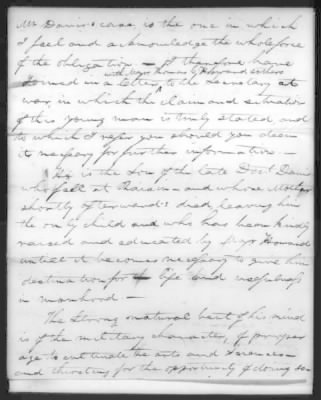 Mr Davis's case is the one in which
I feel and acknowledge the whole force
of the obligation — I therefore have
joined in a letter with Majr Thomas G. Howard & others to the Secretary at
war, in which the claim and situation
of this young man is truly stated and
to which I refer you should you deem
it necessary for further information. —
He is the Son of the late Doct Davis
who fell at Raisin — and whose Mother
shortly afterwards died, leaving him
the only child and who has been kindly
raised and educated by Majr Howard
until it becomes necessary to give him
destination for life and usefulness
in manhood —
The Strong natural bent of his mind
is of the military character, of proper
age to cultivate the arts and Sciences —
and thirsting for the opportunity of doing so —